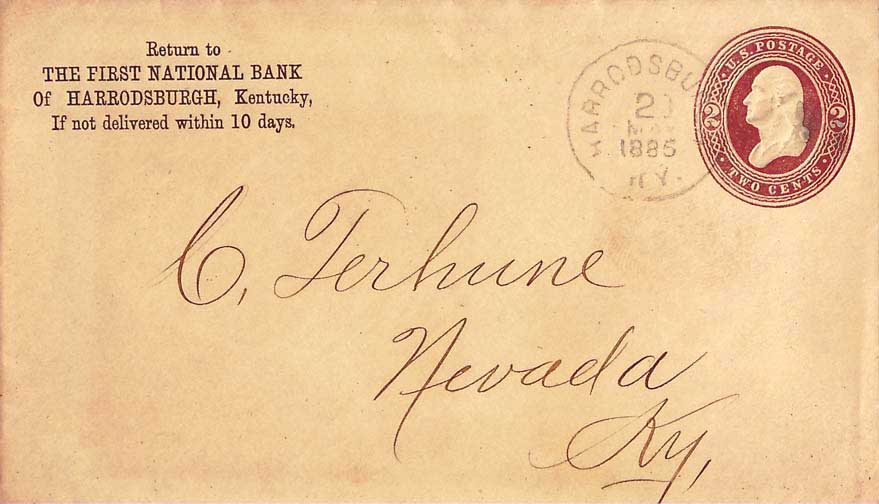 Return to
THE FIRST NATIONAL BANK
Of HARRODSBURGH, Kentucky,
If not delivered within 10 days.
HARRODSBU
1885
KY.
U.S. POSTAGE
2 2
TWO CENTS
C. Terhune
Nevada
Ky.